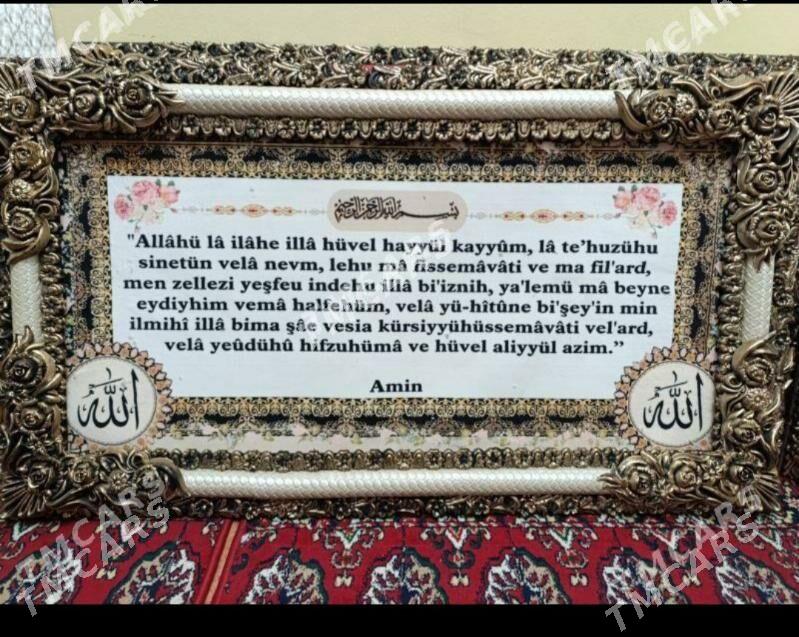 بسم الله الرحمن الرحيم
"Allâhü lâ ilâhe illâ hüvel hayyül kayyûm, lâ te’huzühu
sinetün velâ nevm, lehu mâ fissemâvâti ve ma fil'ard,
men zellezi yeşfeu indehu illâ bi'iznih, ya'lemü mâ beyne
eydiyhim vemâ halfehüm, velâ yü-hîtûne bi'şey'in min
ilmihî illâ bima şâe vesia kürsiyyühüssemâvâti vel'ard,
velâ yeûdühû hifzuhümâ ve hüvel aliyyül azim.”
Amin
الله
الله
TMCARS
TMCARS
TMCARS
TMCARS
TMCARS
TMCARS
TMCARS